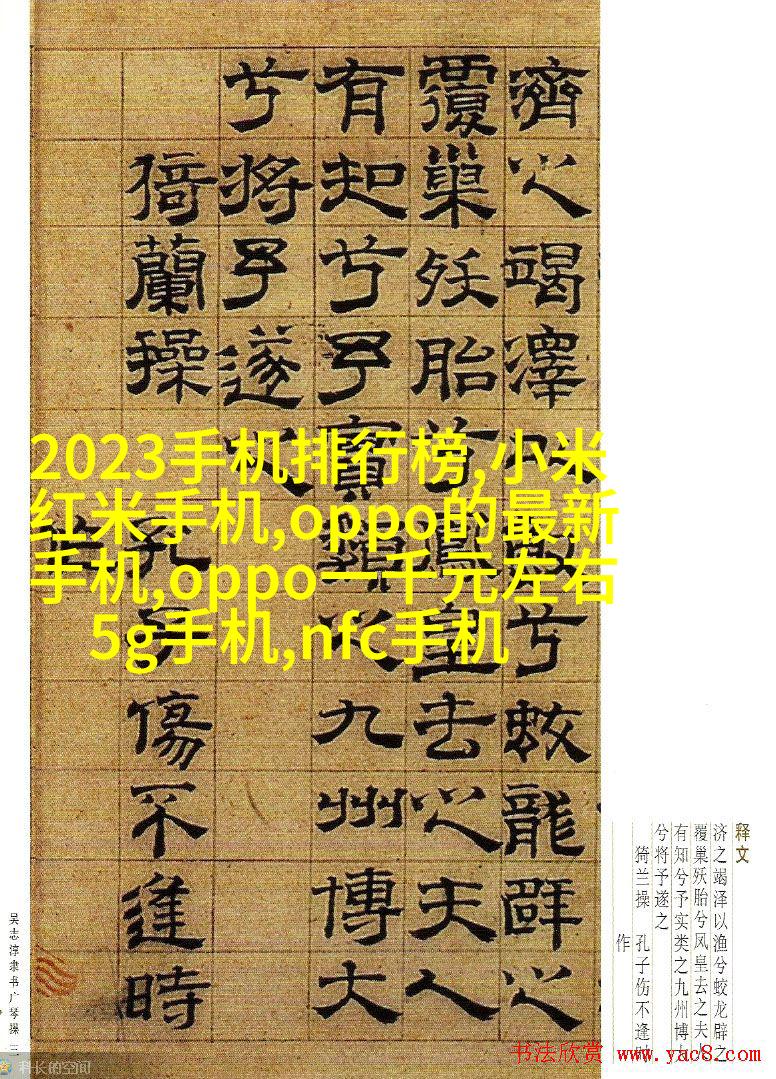 濟之竭澤以漁兮蛟龍辟之
覆巢殀胎兮鳳皇去之夫人
有知兮予實類之九州博大
兮將予遂之
猗蘭操 孔子傷不逢時
作
2023手机排行榜,小米
红米手机,oppo的最新
手机,oppo一千元左右
5g手机,nfc手机
释文
济之竭泽以渔兮蛟龙辟之
覆巢殀胎兮凤皇去之夫
有知兮予实类之九州博
兮将予遂之
猗兰操 孔子伤不逢
作
吴志淳隶书广琴操 三
科长的空间
书法欣赏 www.yac8.com